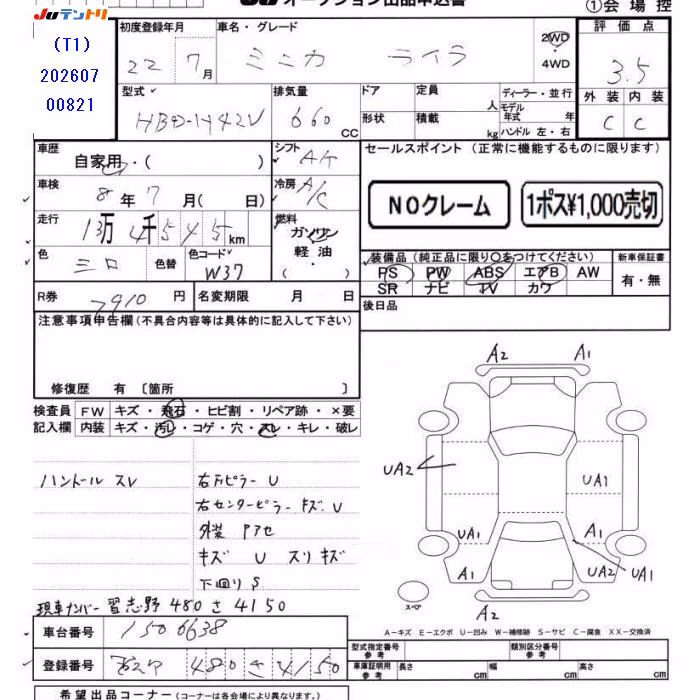 JUテントリ
オークション出品申込書
①会場控
(T1)
202607
00821
初度登録年月
22 7月
車名・グレード
ミニカ ライラ
2WD・4WD
評価点
3.5
外装 内装
C C
型式
HBD-H42V
排気量
660 CC
ドア
形状
定員 人
積載 kg
ディーラー・並行
モデル年式 年
ハンドル 左・右
車歴
自家用・( )
シフト
AT
セールスポイント (正常に機能するものに限ります)
NOクレーム
1ポス¥1,000売切
車検
8年7月( 日)
冷房
A/C
走行
13万4千545km
燃料
ガソリン
軽油
・( )
色
シロ
色替
色コード
W37
装備品(純正品に限り○をつけてください)
PS PW ABS エアB AW
SR ナビ TV カワ
新車保証書
有・無
R券
7910円
名変期限 月 日
後日品
注意事項申告欄(不具合内容等は具体的に記入して下さい)
修復歴 有〔箇所 〕
検査員記入欄
FW キズ・飛石・ヒビ割・リペア跡・×要
内装 キズ・汚レ・コゲ・穴・スレ・キレ・破レ
ハンドル スレ
右Fピラー U
右センターピラー キズ、U
外装 アセ
キズ U スリキズ
下廻り S
現車ナンバー 習志野 480 さ 4150
A2 A1
UA2
UA1
UA1 A1
A1 UA2 UA1
A2
スペア
A-キズ E-エクボ U-凹み W-補修跡 S-サビ C-腐食 XX-交換済
車台番号
1506638
登録番号
480 さ 4150
型式指定番号
参考
類別区分番号
参考
車庫証明用
参考
長さ cm
幅 cm
高さ cm
希望出品コーナー(コーナーは各会場により異なります。)